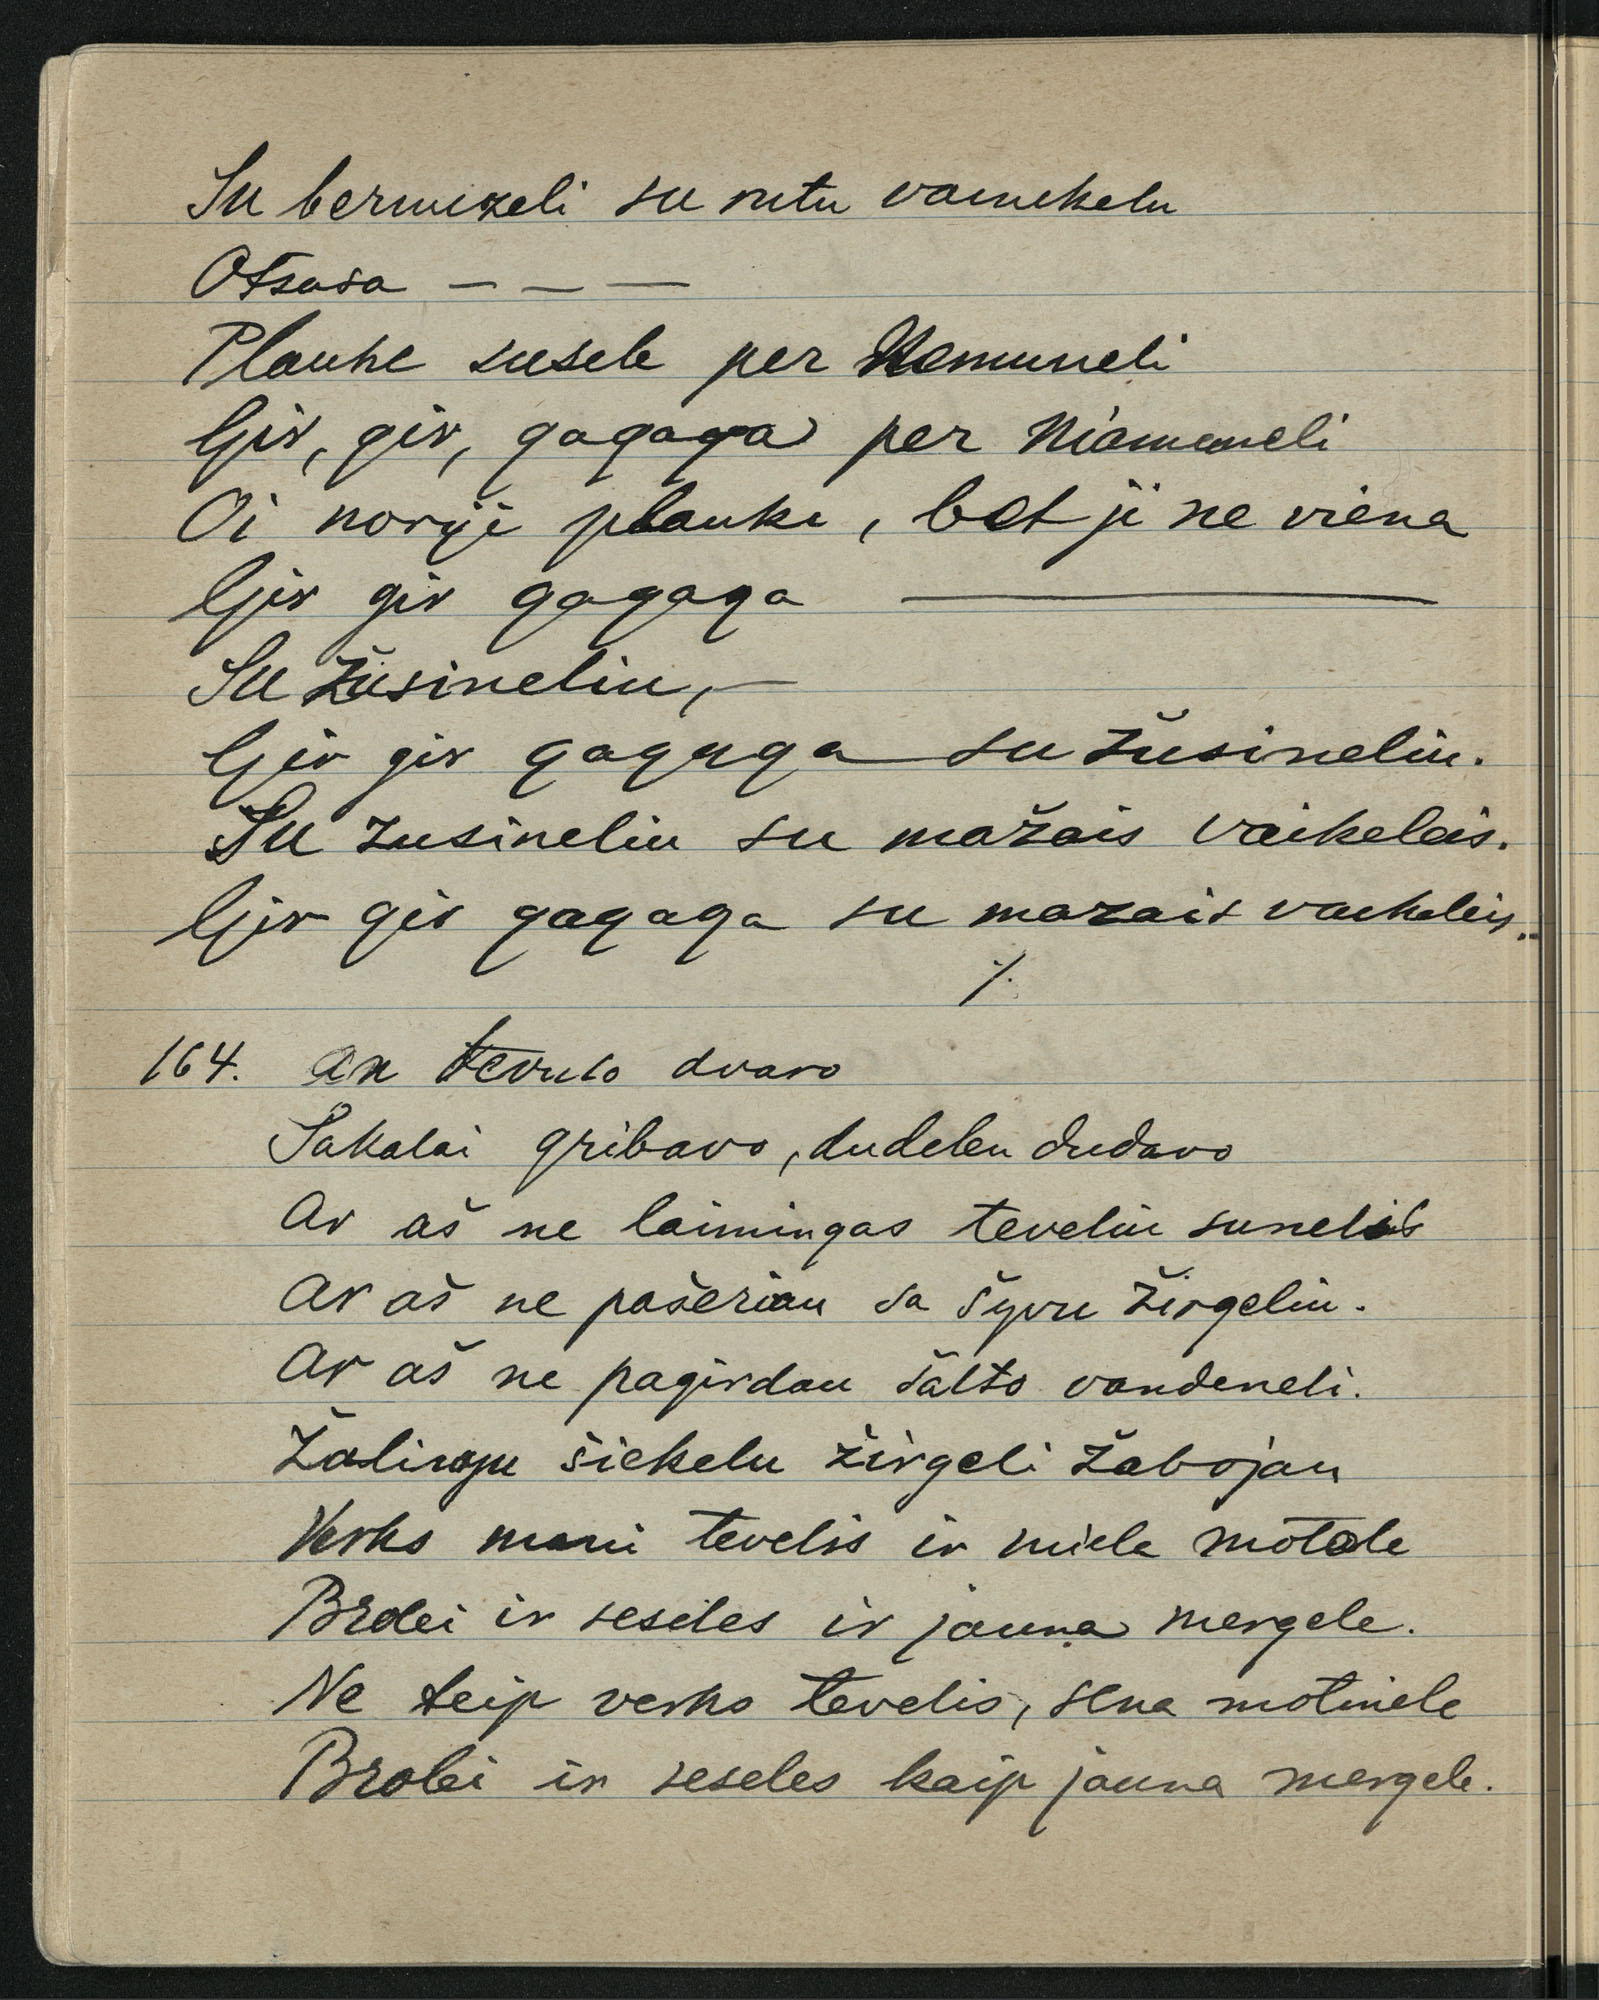 Su bernuzeli su rutu vainikelu
Otsasa — — —
Plauke susele per Nemuneli
Gir, gir, gagaga per Niamuneli
Oi norije plauke, bet ji ne viena
Gir gir gagaga —
Su Žusineliu, —
Gir gir gagaga su žusineliu.
Su zusineliu su mažais vaikeleis.
Gir gir gagaga su mazais vaikeleis.
⁒
164. An tevulo dvaro
Sakalai gribavo, dudelen dudavo
Ar aš ne laimingas teveliu sunelis
Ar aš ne pašeriau sa šyvu žirgeliu.
Ar aš ne pagirdau šalto vandeneli.
Žaliuoju šiekelu žirgeli žabojau
Verks mani tevelis ir miela motele
Brolei ir seseles ir jauna mergele.
Ne teip verks tevelis, sena motinele
Brolei ir seseles kaip jauna mergele.